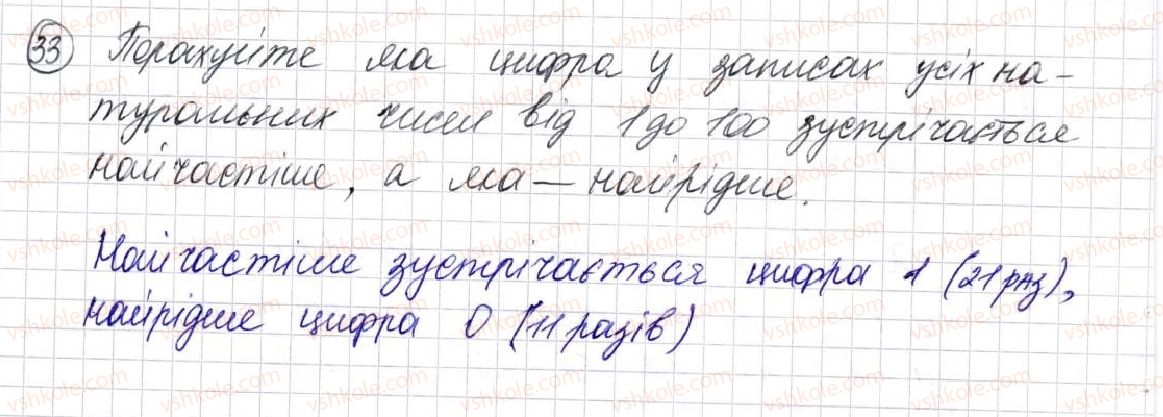 33 Порахуйте яка цифра у записах усіх на-
туральних чисел від 1 до 100 зустрічається
найчастіше, а яка — найрідше.
Найчастіше зустрічається цифра 1 (21 раз),
найрідше цифра 0 (11 разів)